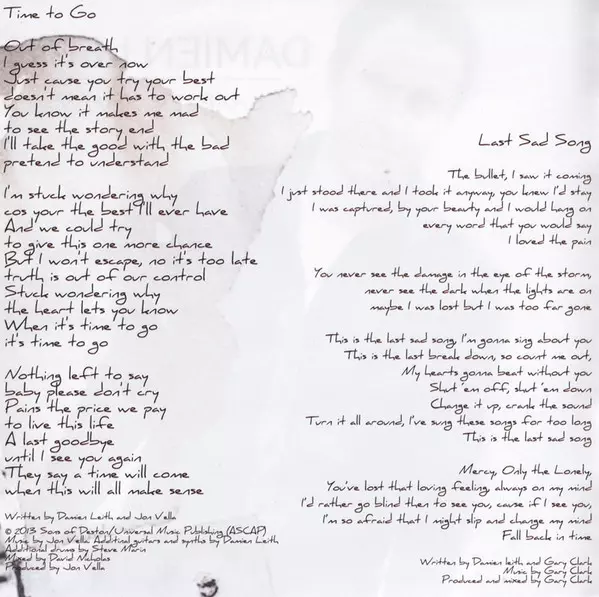 Time to Go
Out of breath
I guess it's over now
Just cause you try your best
doesn't mean it has to work out
You know it makes me mad
to see the story end
I'll take the good with the bad
pretend to understand
I'm stuck wondering why
cos your the best I'll ever have
And we could try
to give this one more chance
But I won't escape, no it's too late
truth is out of our control
Stuck wondering why
the heart lets you know
When it's time to go
it's time to go
Nothing left to say
baby please don't cry
Pains the price we pay
to live this life
A last goodbye
until I see you again
They say a time will come
when this will all make sense
Written by Damien Leith and Jon Vella
© 2013 Sons of Deston/Universal Music Publishing (ASCAP)
Music by Jon Vella Additional guitars and synths by Damien Leith
Additional drums by Steve Marin
Mixed by David Nicholas
Produced by Jon Vella
DAMIEN
Last Sad Song
The bullet, I saw it coming
I just stood there and I took it anyway, you knew I'd stay
I was captured, by your beauty and I would hang on
every word that you would say
I loved the pain
You never see the damage in the eye of the storm,
never see the dark when the lights are on
maybe I was lost but I was too far gone
This is the last sad song, I'm gonna sing about you
This is the last break down, so count me out,
My hearts gonna beat without you
Shut 'em off, shut 'em down
Change it up, crank the sound
Turn it all around, I've sung these songs for too long
This is the last sad song
Mercy, Only the Lonely,
You've lost that loving feeling, always on my mind
I'd rather go blind then to see you, cause if I see you,
I'm so afraid that I might slip and change my mind
Fall back in time
Written by Damien leith and Gary Clark
Music by Gary Clark
Produced and mixed by Gary Clark